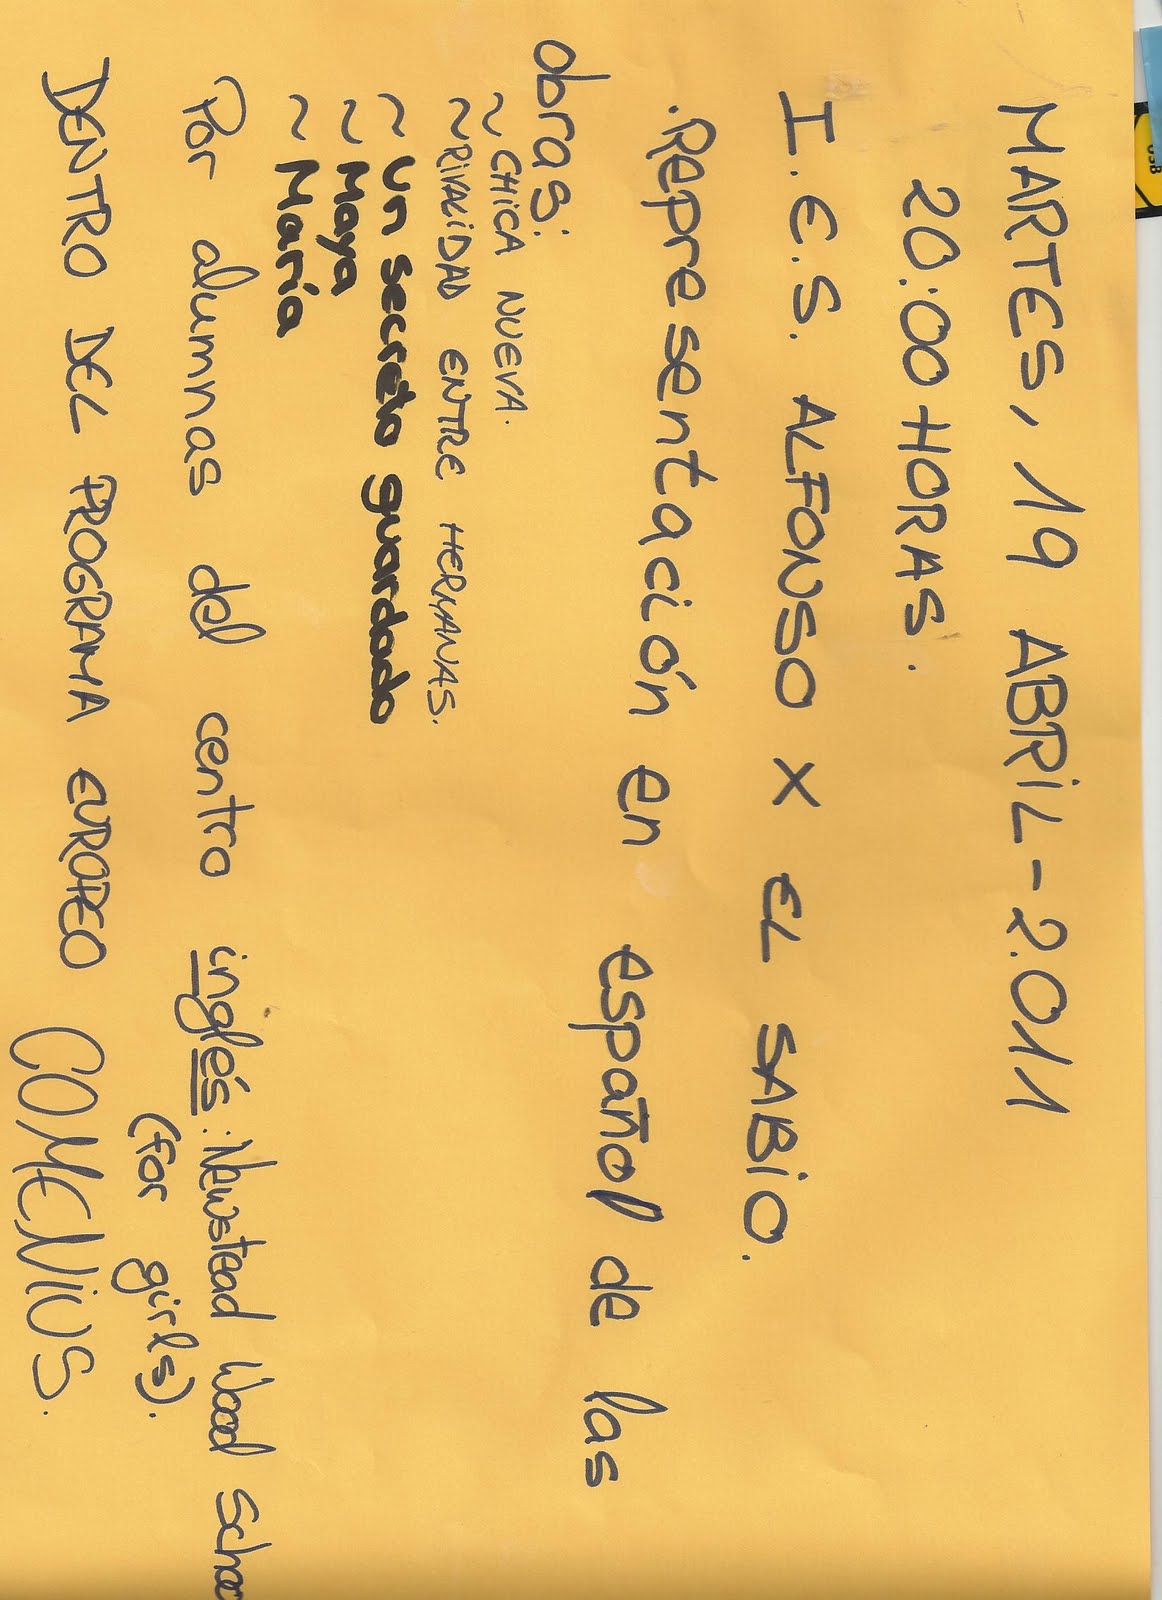 MARTES, 19 ABRIL-2.011
20:00 HORAS.
I.E.S. ALFONSO X EL SABIO.
.Representación en español de las
obras:
~ CHICA NUEVA.
~ RIVALIDAD ENTRE HERMANAS.
~ Un secreto guardado
~ Maya
~ María
Por alumnas del centro inglés: Newstead Wood Schoo
(for girls).
DENTRO DEL PROGRAMA EUROPEO COMENIUS.
USB